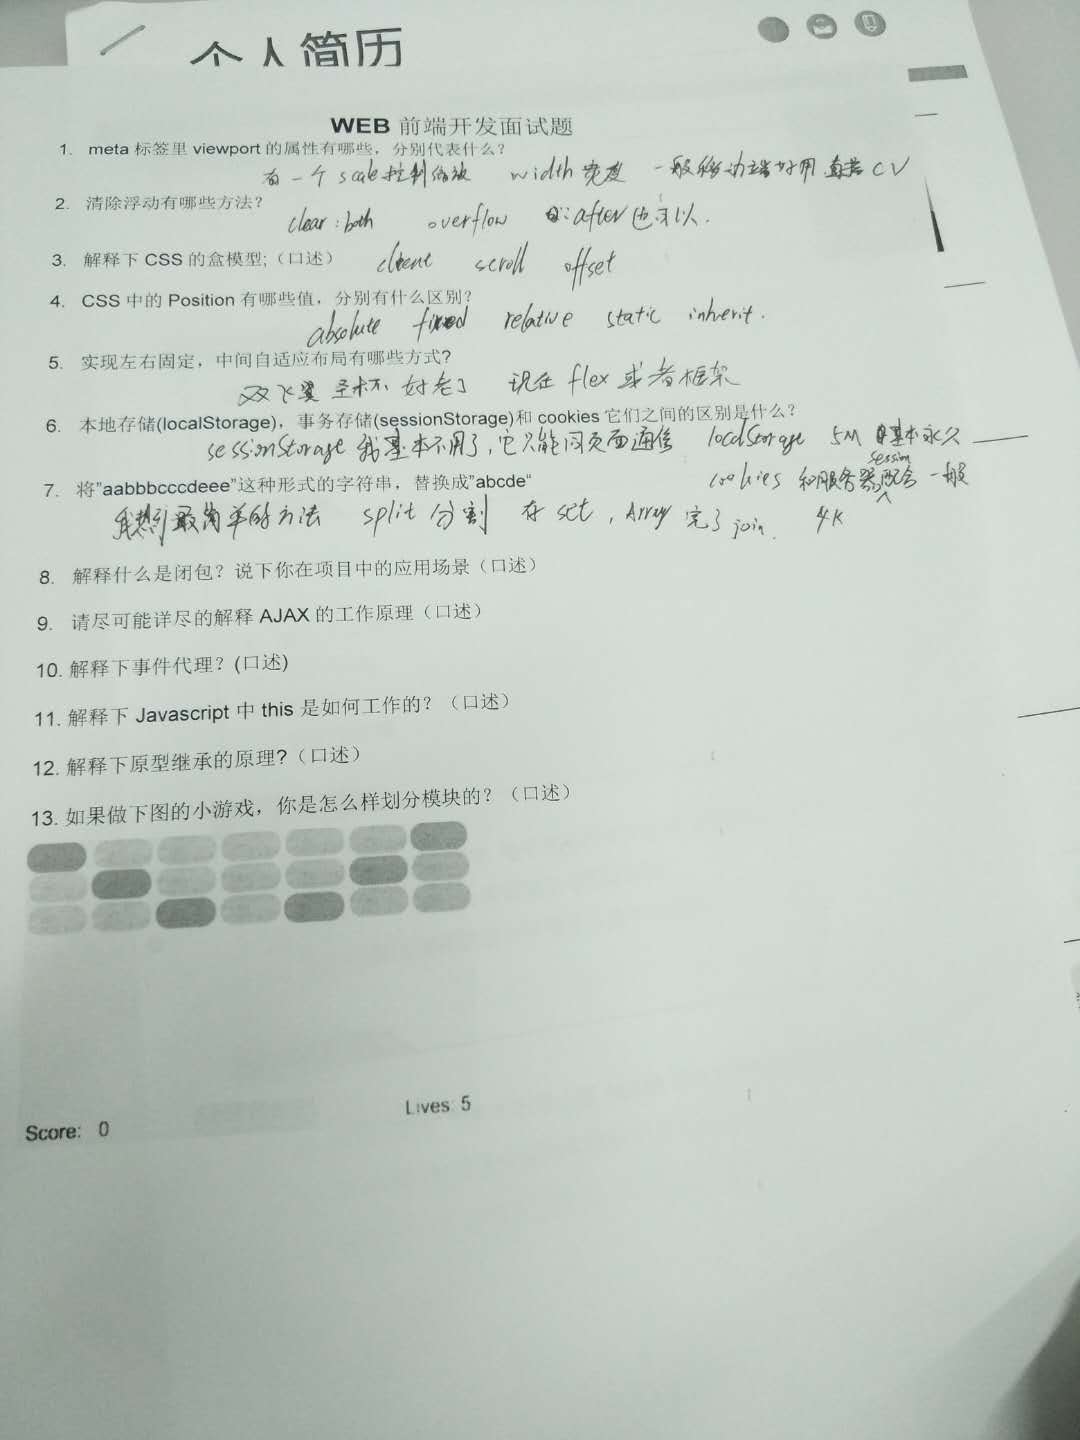 个人简历
WEB 前端开发面试题
1. meta 标签里 viewport 的属性有哪些，分别代表什么？
有一个 scale 控制缩放 width 宽度 一般移动端好用 直接 CV
2. 清除浮动有哪些方法？
clear:both overflow ::after 也可以.
3. 解释下 CSS 的盒模型;（口述）
client scroll offset
4. CSS 中的 Position 有哪些值，分别有什么区别？
absolute fixed relative static inherit.
5. 实现左右固定，中间自适应布局有哪些方式？
双飞翼 圣杯 好老了 现在 flex 或者框架
6. 本地存储(localStorage)，事务存储(sessionStorage)和 cookies 它们之间的区别是什么？
sessionStorage 我基本不用了，它只能同页面通信 localStorage 5M 基本永久
7. 将"aabbbcccdeee"这种形式的字符串，替换成"abcde"
cookies 和服务器session配合 一般
4K
我想到最简单的方法 split 分割 在 set，Array 完了 join.
8. 解释什么是闭包？说下你在项目中的应用场景（口述）
9. 请尽可能详尽的解释 AJAX 的工作原理（口述）
10. 解释下事件代理？(口述)
11. 解释下 Javascript 中 this 是如何工作的？（口述）
12. 解释下原型继承的原理?（口述）
13. 如果做下图的小游戏，你是怎么样划分模块的？（口述）
Lives: 5
Score: 0